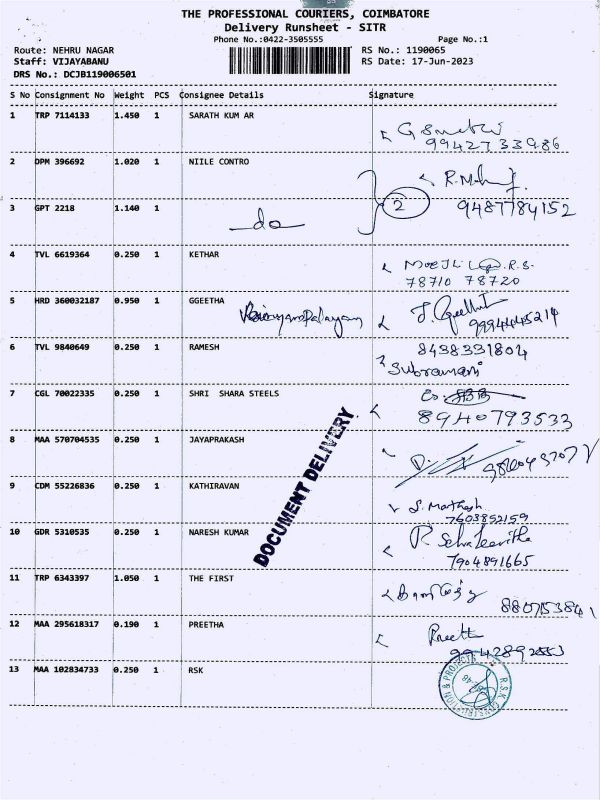 THE PROFESSIONAL COURIERS, COIMBATORE
Delivery Runsheet - SITR
Phone No.:0422-3505555 Page No.:1
Route: NEHRU NAGAR RS No.: 1190065
Staff: VIJAYABANU RS Date: 17-Jun-2023
DRS No.: DCJB119006501
S No Consignment No Weight PCS Consignee Details Signature
1 TRP 7114133 1.450 1 SARATH KUM AR
9942733986
2 DPM 396692 1.020 1 NIILE CONTRO
2 9487784152
3 GPT 2218 1.140 1
do
4 TVL 6619364 0.250 1 KETHAR
78710 78720
5 HRD 360032187 0.950 1 GGEETHA
9994445214
6 TVL 9840649 0.250 1 RAMESH 8438331804
Subramani
7 CGL 70022335 0.250 1 SHRI SHARA STEELS
8940793533
8 MAA 570704535 0.250 1 JAYAPRAKASH
DOCUMENT DELIVERY
9 CDM 55226836 0.250 1 KATHIRAVAN
7603852159
10 GDR 5310535 0.250 1 NARESH KUMAR
7904891665
11 TRP 6343397 1.050 1 THE FIRST
8807153841
12 MAA 295618317 0.190 1 PREETHA
13 MAA 102834733 0.250 1 RSK